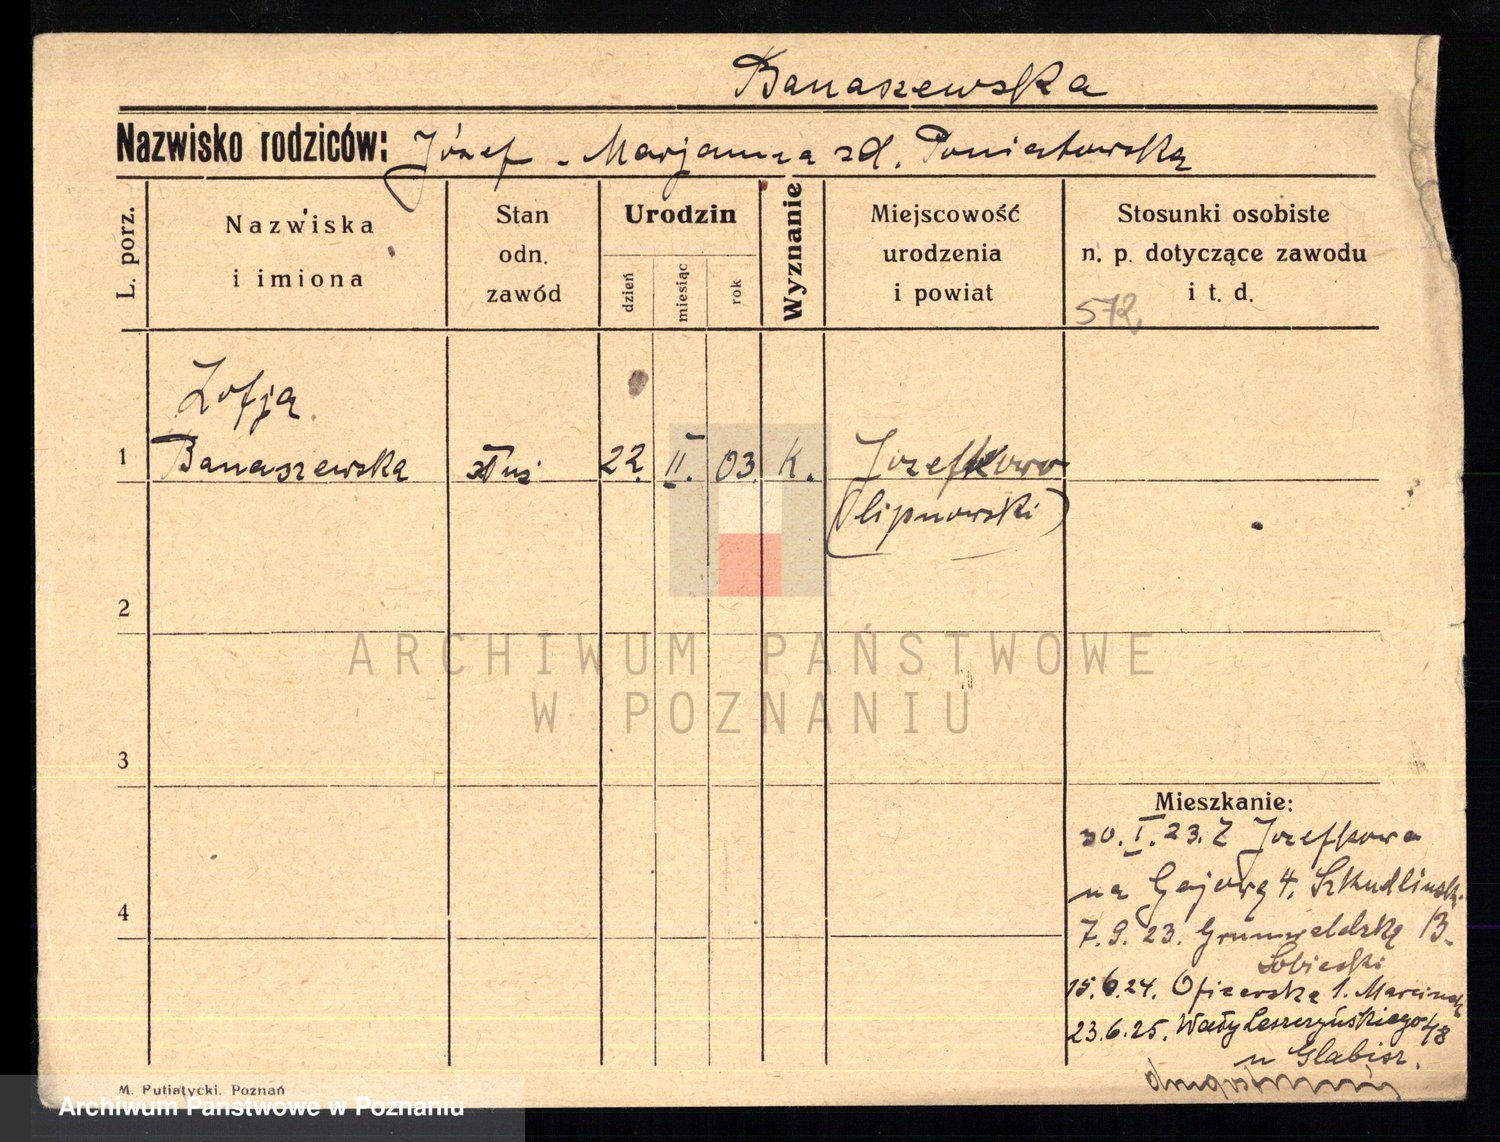 Banaszewska
Nazwisko rodziców: Józef - Marjanna zd. Poniatowska
L. porz.
Nazwiska
i imiona
Stan
odn.
zawód
Urodzin
dzień
miesiąc
rok
Wyznanie
Miejscowość
urodzenia
i powiat
Stosunki osobiste
n. p. dotyczące zawodu
i t. d.
572
Zofja
1 Banaszewska 22. II. 03. K. Jozefkowo
(lipnowski)
2
ARCHIWUM PAŃSTWOWE
W POZNANIU
3
Mieszkanie:
30. I. 23. Z Jozefkowa
na Gajową 4. Szkudlinski
4
7. 9. 23. Grunwaldzką 13.
Sobieski
15. 6. 24. Oficerska 1. Marciniak
23. 6. 25. Wały Leszczyńskiego 48
u Glabisz.
M. Putiatycki. Poznań
Archiwum Państwowe w Poznaniu